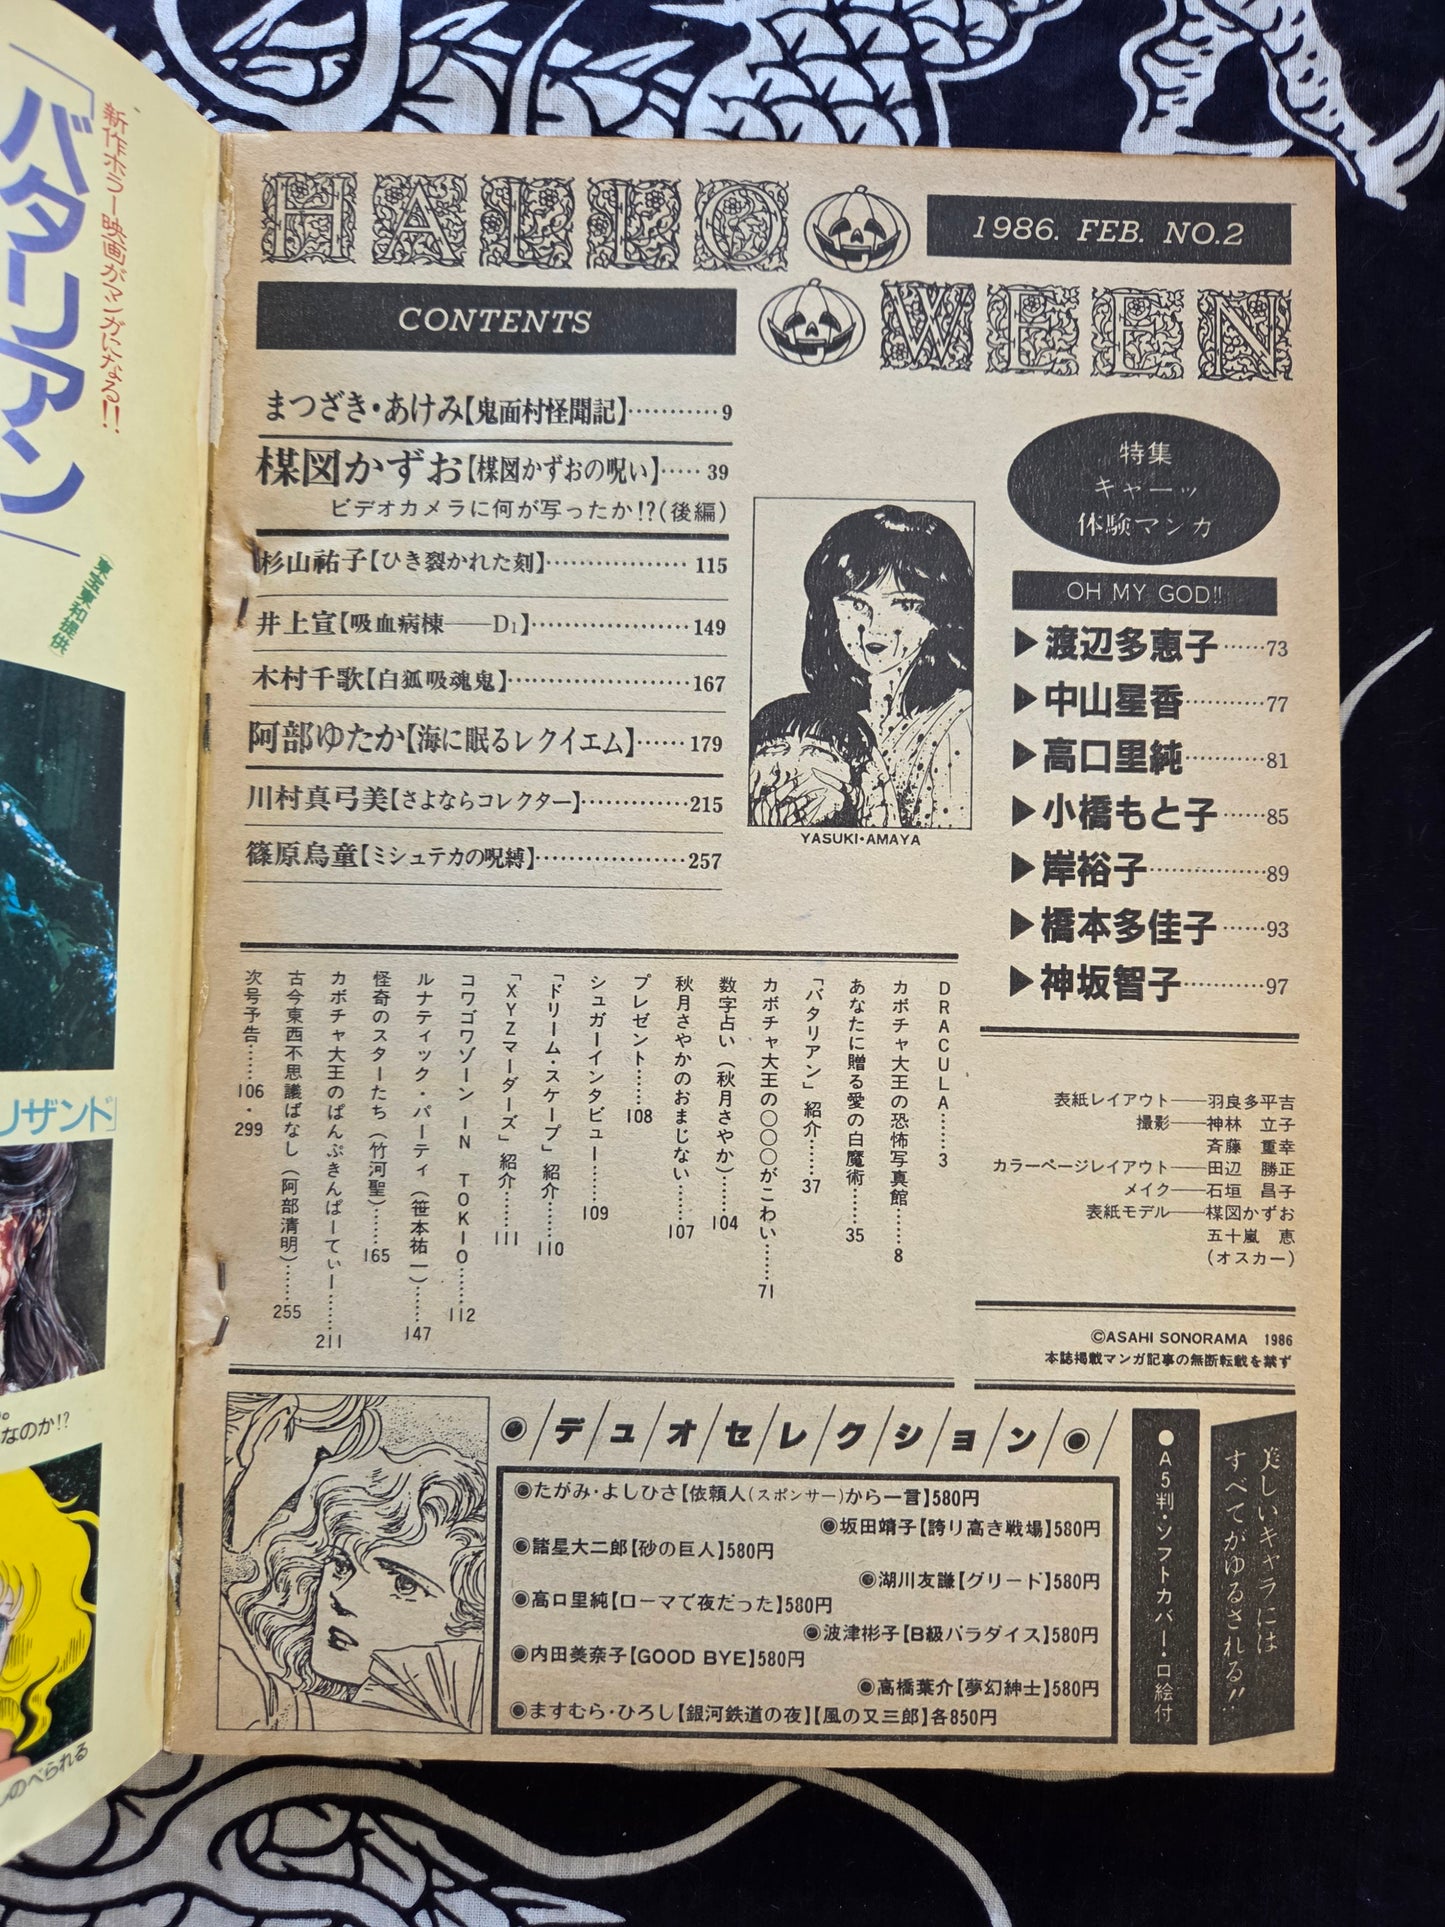 新作ホラー映画がマンガになる!!
「バタリアン」
[東宝東和提供]
リザンド」
なのか!?
しのべられる
HALLO
WEEN
1986. FEB. NO.2
CONTENTS
まつざき・あけみ【鬼面村怪聞記】…………9
楳図かずお【楳図かずおの呪い】……39
ビデオカメラに何が写ったか!?(後編)
杉山祐子【ひき裂かれた刻】………………115
井上宣【吸血病棟——D1】…………………149
木村千歌【白狐吸魂鬼】……………………167
阿部ゆたか【海に眠るレクイエム】……179
川村真弓美【さよならコレクター】…………215
篠原烏童【ミシュテカの呪縛】………………257
YASUKI・AMAYA
特集
キャーッ
体験マンガ
OH MY GOD!!
▶渡辺多恵子……73
▶中山星香…………77
▶高口里純…………81
▶小橋もと子……85
▶岸裕子………………89
▶橋本多佳子……93
▶神坂智子…………97
DRACULA……3
カボチャ大王の恐怖写真館……8
あなたに贈る愛の白魔術……35
「バタリアン」紹介……37
カボチャ大王の〇〇〇がこわい……71
数字占い(秋月さやか)……104
秋月さやかのおまじない……107
プレゼント……108
シュガーインタビュー……109
「ドリーム・スケープ」紹介……110
「XYZマーダーズ」紹介……111
コワゴワゾーン IN TOKIO……112
ルナティック・パーティ(笹本祐一)……147
怪奇のスターたち(竹河聖)……165
カボチャ大王のぱんぷきんぱーてぃー……211
古今東西不思議ばなし(阿部清明)……255
次号予告……106・299
表紙レイアウト——羽良多平吉
撮影——神林 立子
斉藤 重幸
カラーページレイアウト——田辺 勝正
メイク——石垣 昌子
表紙モデル——楳図かずお
五十嵐 恵
(オスカー)
©ASAHI SONORAMA 1986
本誌掲載マンガ記事の無断転載を禁ず
◉デュオセレクション◉
◉たがみ・よしひさ【依頼人(スポンサー)から一言】580円
◉坂田靖子【誇り高き戦場】580円
◉諸星大二郎【砂の巨人】580円
◉湖川友謙【グリード】580円
◉高口里純【ローマで夜だった】580円
◉波津彬子【B級パラダイス】580円
◉内田美奈子【GOOD BYE】580円
◉高橋葉介【夢幻紳士】580円
◉ますむら・ひろし【銀河鉄道の夜】【風の又三郎】各850円
●A5判・ソフトカバー・口絵付
美しいキャラには
すべてがゆるされる!!